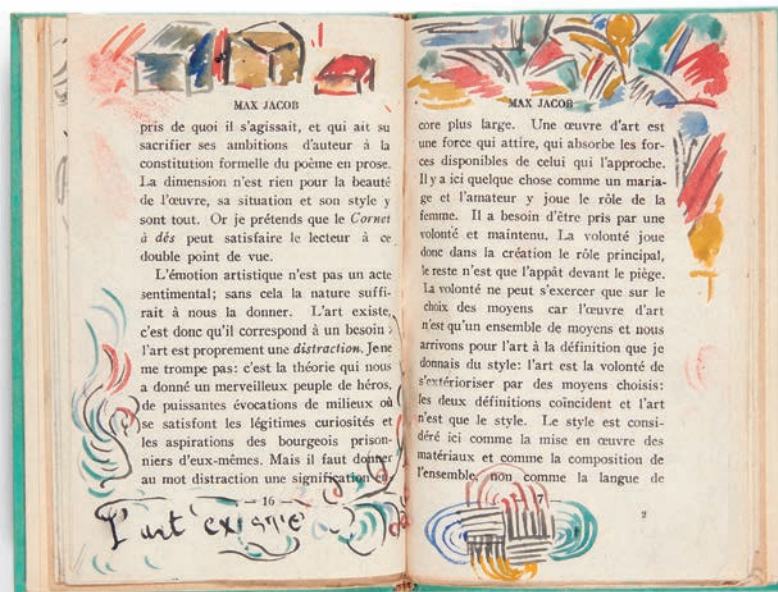 MAX JACOB
pris de quoi il s'agissait, et qui ait su
sacrifier ses ambitions d'auteur à la
constitution formelle du poème en prose.
La dimension n'est rien pour la beauté
de l'œuvre, sa situation et son style y
sont tout. Or je prétends que le Cornet
à dés peut satisfaire le lecteur à ce
double point de vue.
L'émotion artistique n'est pas un acte
sentimental; sans cela la nature suffi-
rait à nous la donner. L'art existe,
c'est donc qu'il correspond à un besoin :
l'art est proprement une distraction. Je ne
me trompe pas: c'est la théorie qui nous
a donné un merveilleux peuple de héros,
de puissantes évocations de milieux où
se satisfont les légitimes curiosités et
les aspirations des bourgeois prison-
niers d'eux-mêmes. Mais il faut donner
au mot distraction une signification
— 16 —
L'art existe
MAX JACOB
core plus large. Une œuvre d'art est
une force qui attire, qui absorbe les for-
ces disponibles de celui qui l'approche.
Il y a ici quelque chose comme un maria-
ge et l'amateur y joue le rôle de la
femme. Il a besoin d'être pris par une
volonté et maintenu. La volonté joue
donc dans la création le rôle principal,
le reste n'est que l'appât devant le piège.
La volonté ne peut s'exercer que sur le
choix des moyens car l'œuvre d'art
n'est qu'un ensemble de moyens et nous
arrivons pour l'art à la définition que je
donnais du style: l'art est la volonté de
s'extérioriser par des moyens choisis:
les deux définitions coïncident et l'art
n'est que le style. Le style est consi-
déré ici comme la mise en œuvre des
matériaux et comme la composition de
l'ensemble, non comme la langue de
7
2